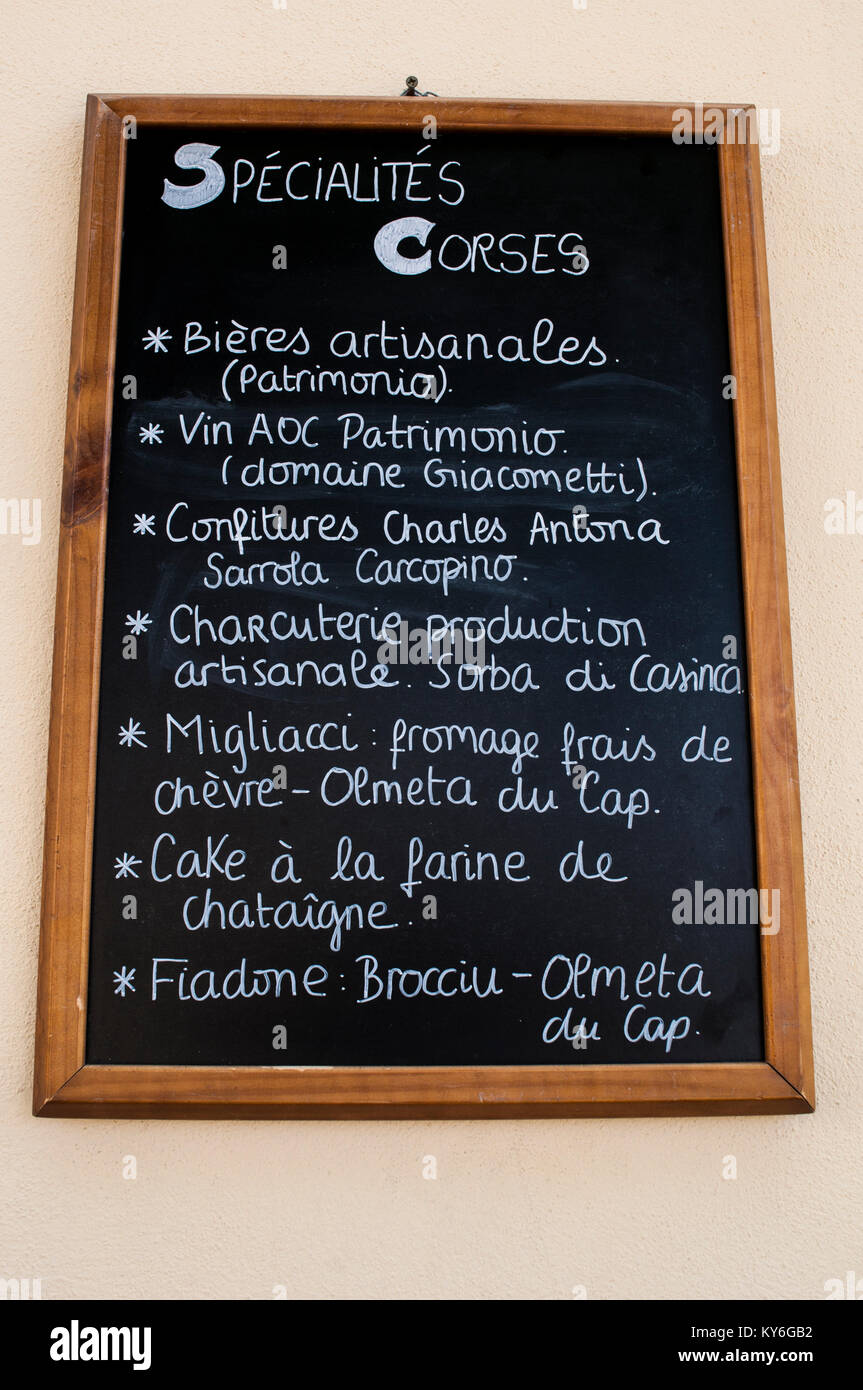 SPÉCIALITÉS
CORSES
* Bières artisanales.
(Patrimonio).
* Vin AOC Patrimonio.
(domaine Giacometti).
* Confitures Charles Antona
Sarrola Carcopino.
* Charcuterie production
artisanale. Sorba di Casinca
* Migliacci : fromage frais de
chèvre - Olmeta du Cap.
* Cake à la farine de
chataîgne.
* Fiadone : Brocciu - Olmeta
du Cap.
alamy
Image ID: KY6GB2
www.alamy.com